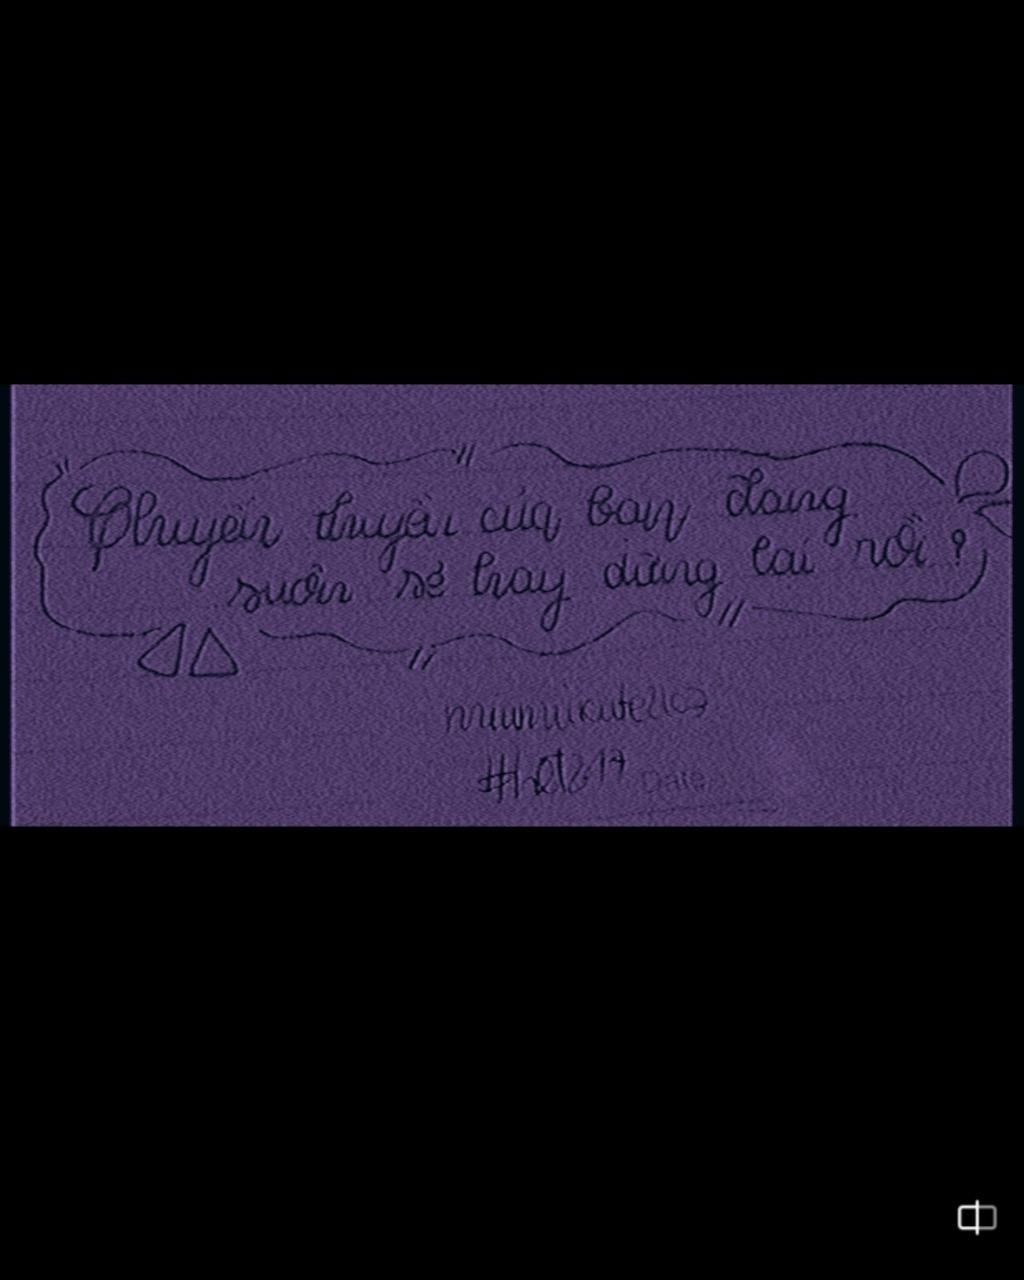 Chuyến thuyền của bạn đang
suôn sẻ hay dừng lại rồi?
miumiukute2103
Date